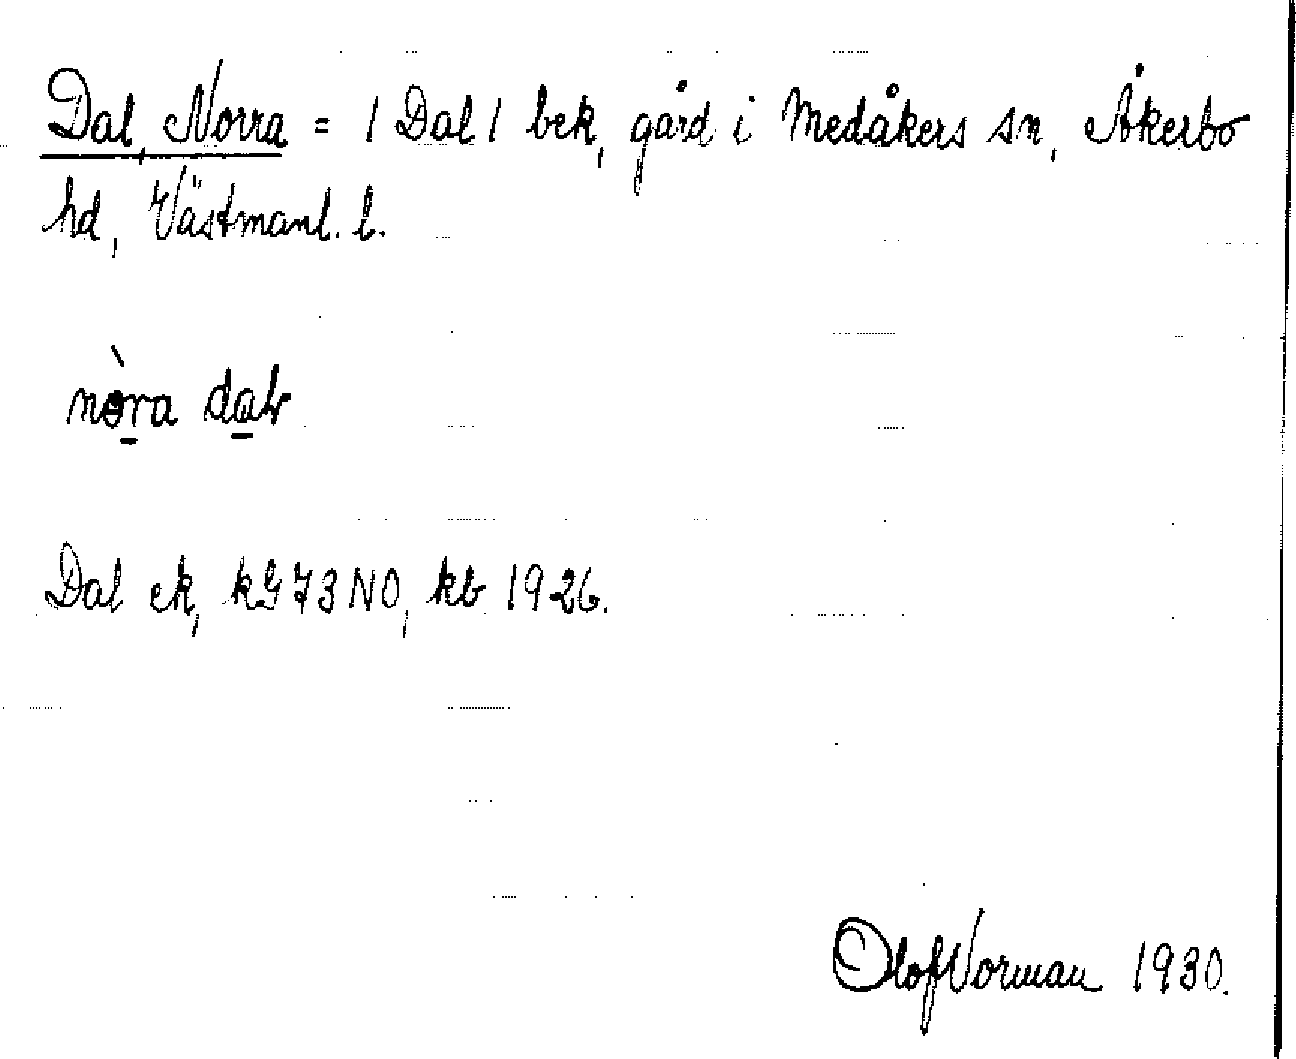 Dal, Norra = / Dal / bek, gård i Medåkers sn, Åkerbo
hd, Västmanl. l.
nòra dal
Dal ek, kG73NO, kb 1926.
Olof Vorman 1930.